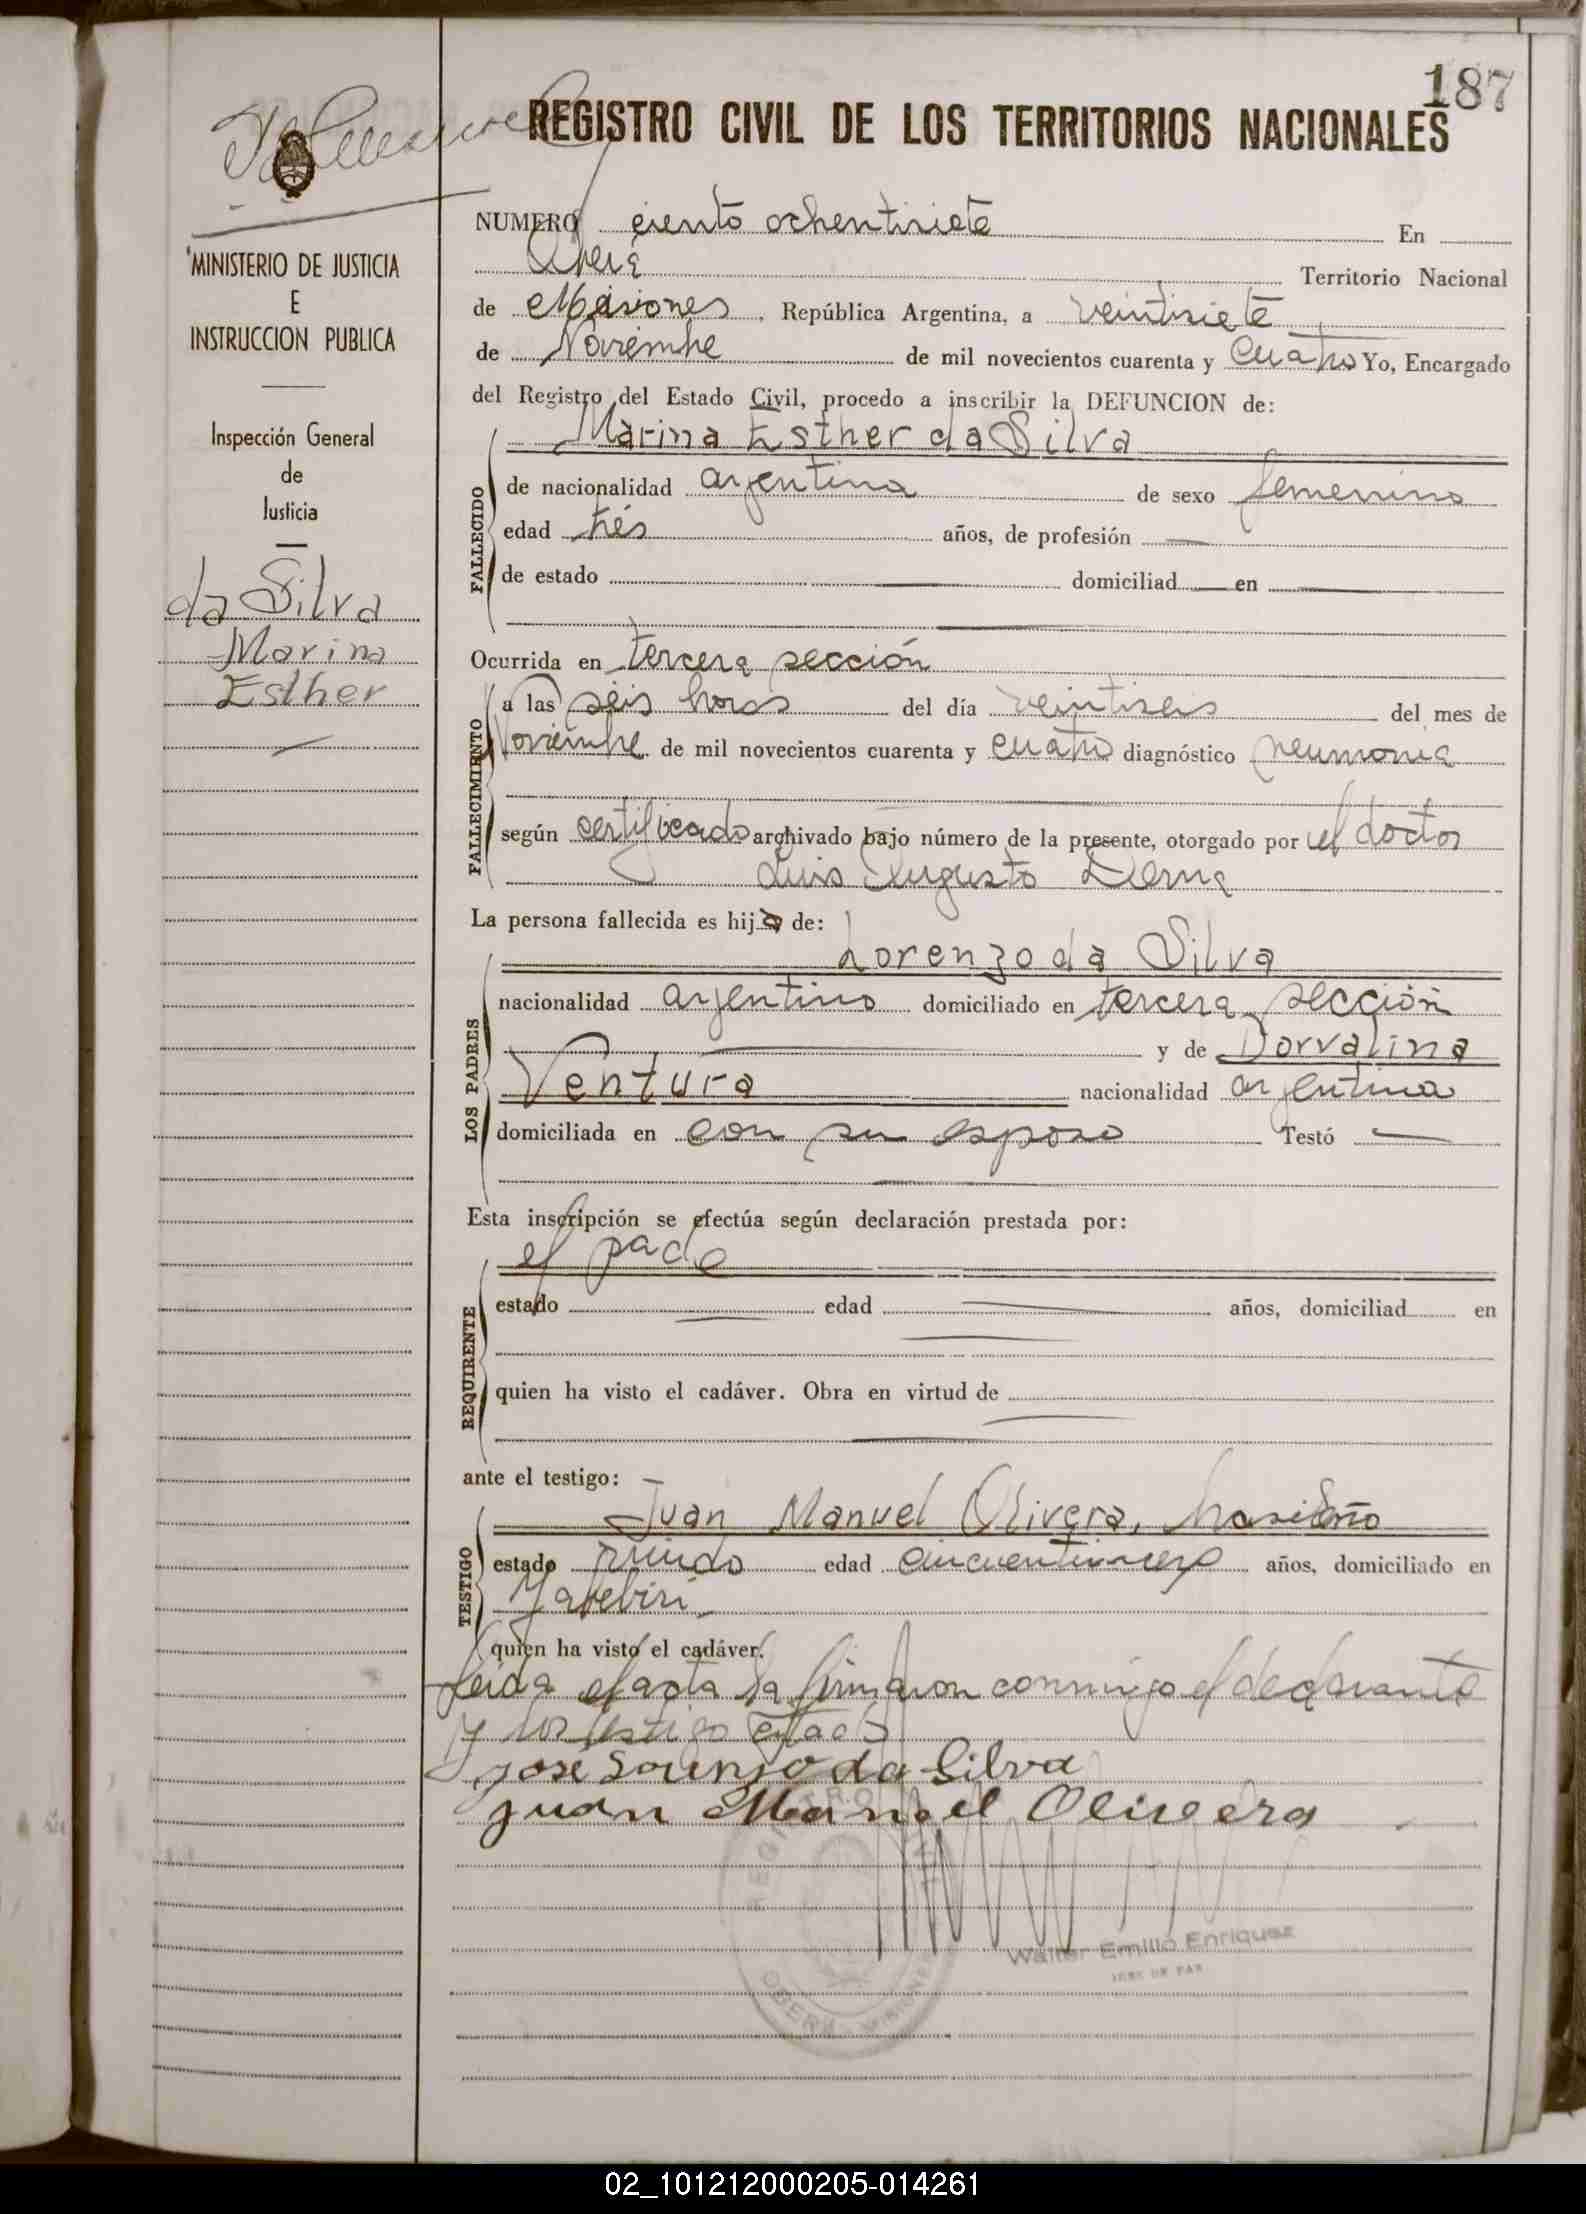 187
REGISTRO CIVIL DE LOS TERRITORIOS NACIONALES
MINISTERIO DE JUSTICIA
E
INSTRUCCION PUBLICA
Inspección General
de
Justicia
da Silva
Marina
Esther
NUMERO ciento ochentisiete En
Oberá Territorio Nacional
de Misiones, República Argentina, a veintisiete
de Noviembre de mil novecientos cuarenta y cuatro Yo, Encargado
del Registro del Estado Civil, procedo a inscribir la DEFUNCION de:
Marina Esther da Silva
FALLECIDO
de nacionalidad argentina de sexo femenino
edad trés años, de profesión
de estado domiciliad en
Ocurrida en tercera sección
FALLECIMIENTO
a las seis horas del día veintiseis del mes de
Noviembre de mil novecientos cuarenta y cuatro diagnóstico neumonia
según certificado archivado bajo número de la presente, otorgado por el doctor
Luis Augusto
La persona fallecida es hija de:
Lorenzo da Silva
LOS PADRES
nacionalidad argentino domiciliado en tercera sección
y de Dorvalina
Ventura nacionalidad argentina
domiciliada en con su esposo Testó
Esta inscripción se efectúa según declaración prestada por:
el padre
REQUIRENTE
estado edad años, domiciliad en
quien ha visto el cadáver. Obra en virtud de
ante el testigo:
Juan Manuel Olivera, brasileño
TESTIGO
estado viudo edad años, domiciliado en
Yabebiri
quien ha visto el cadáver.
Leida el acta la firmaron conmigo el declarante
y los testigo
José Lorenzo da Silva
Juan Manuel Olivera
REGISTRO CIVIL
OBERA - MISIONES
Walter Emilio Enriquez
JUEZ DE PAZ
02_101212000205-014261